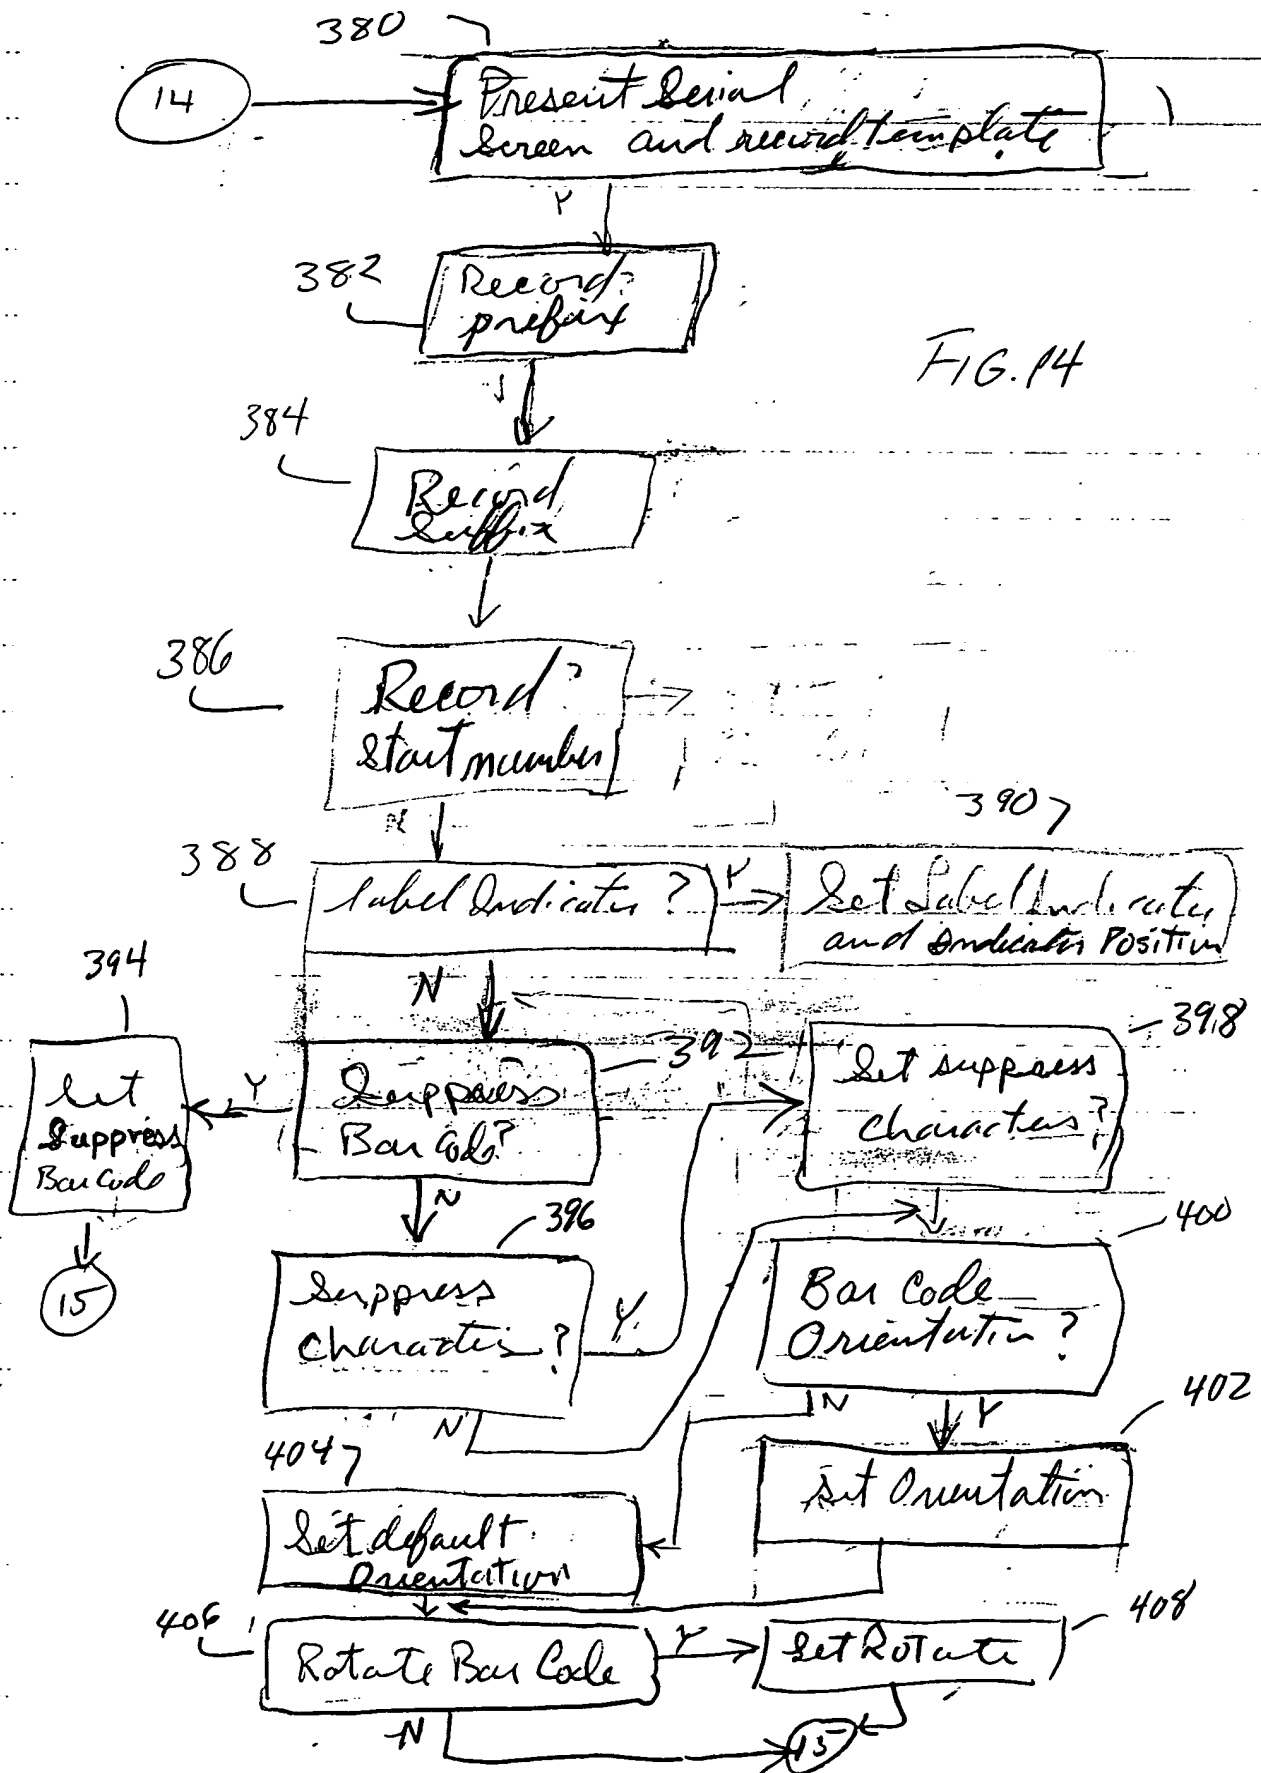 380
14
Present Serial
Screen and record template
Y
382
Record?
prefix
FIG. 14
384
Record
Suffix
386
Record?
Start number
N
390
388
Label Indicator?
Y
Set Label Indicator
and Indicator Position
394
N
398
392
Set
Suppress
Bar Code
Y
Suppress
Bar Code?
Set suppress
characters?
N
396
400
15
Suppress
Characters?
Y
Bar Code
Orientation?
N
N
Y
402
404
Set Orientation
Set default
Orientation
406
408
Rotate Bar Code
Y
Set Rotate
N
15